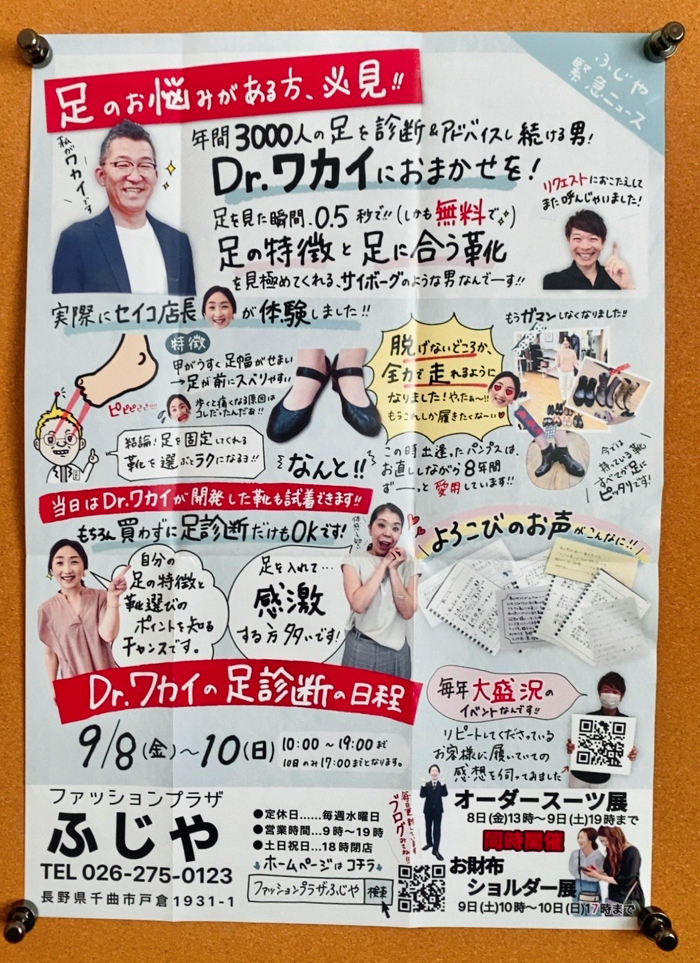 ふじや
緊急ニュース
足のお悩みがある方、必見!!
私がワカイです
年間3000人の足を診断&アドバイスし続ける男!
Dr.ワカイにおまかせを!
足を見た瞬間、0.5秒で!!(しかも無料で)
足の特徴と足に合う靴が
を見極めてくれる、サイボーグのような男なんでーす!!
リクエストにおこたえして
また呼んじゃいました!
実際にセイコ店長が体験しました!!
特徴
甲がうすく足幅がせまい
→足が前にスベりやすい
歩くと痛くなる原因は
コレだったんだぁ!!
ピピピピピ!!!
結論!足を固定してくれる
靴を選ぶとラクになるヨ!!
なんと!!
脱げないどころか、
全力で走れるように
なりました!やったぁ〜!!
もうこれしか履きたくな〜い
この時出逢ったパンプスは、
お直ししながら8年間
ず〜〜っと愛用しています!!
もうガマンしなくなりました!!
今では
持っている靴
すべてが足に
ピッタリです!
当日はDr.ワカイが開発した靴も試着できます!!
もちろん買わずに足診断だけもOKです!
自分の
足の特徴と
靴選びの
ポイントを知る
チャンスです。
足を入れて…
感激
する方多いです!
よろこびのお声がこんなに!!
Dr.ワカイの足診断の日程
9/8(金)〜10(日)
10:00〜19:00まで
10日のみ17:00までとなります。
毎年大盛況の
イベントなんです!!
リピートしてくださっている
お客様に履いていての
感想を伺ってみました
ファッションプラザ
ふじや
TEL 026-275-0123
長野県千曲市戸倉1931-1
●定休日……毎週水曜日
●営業時間…9時〜19時
●土日祝日…18時閉店
ホームページはコチラ
ファッションプラザふじや 検索
毎日更新しています
ブログみてね!!
オーダースーツ展
8日(金)13時〜9日(土)19時まで
同時開催
お財布
ショルダー展
9日(土)10時〜10日(日)17時まで